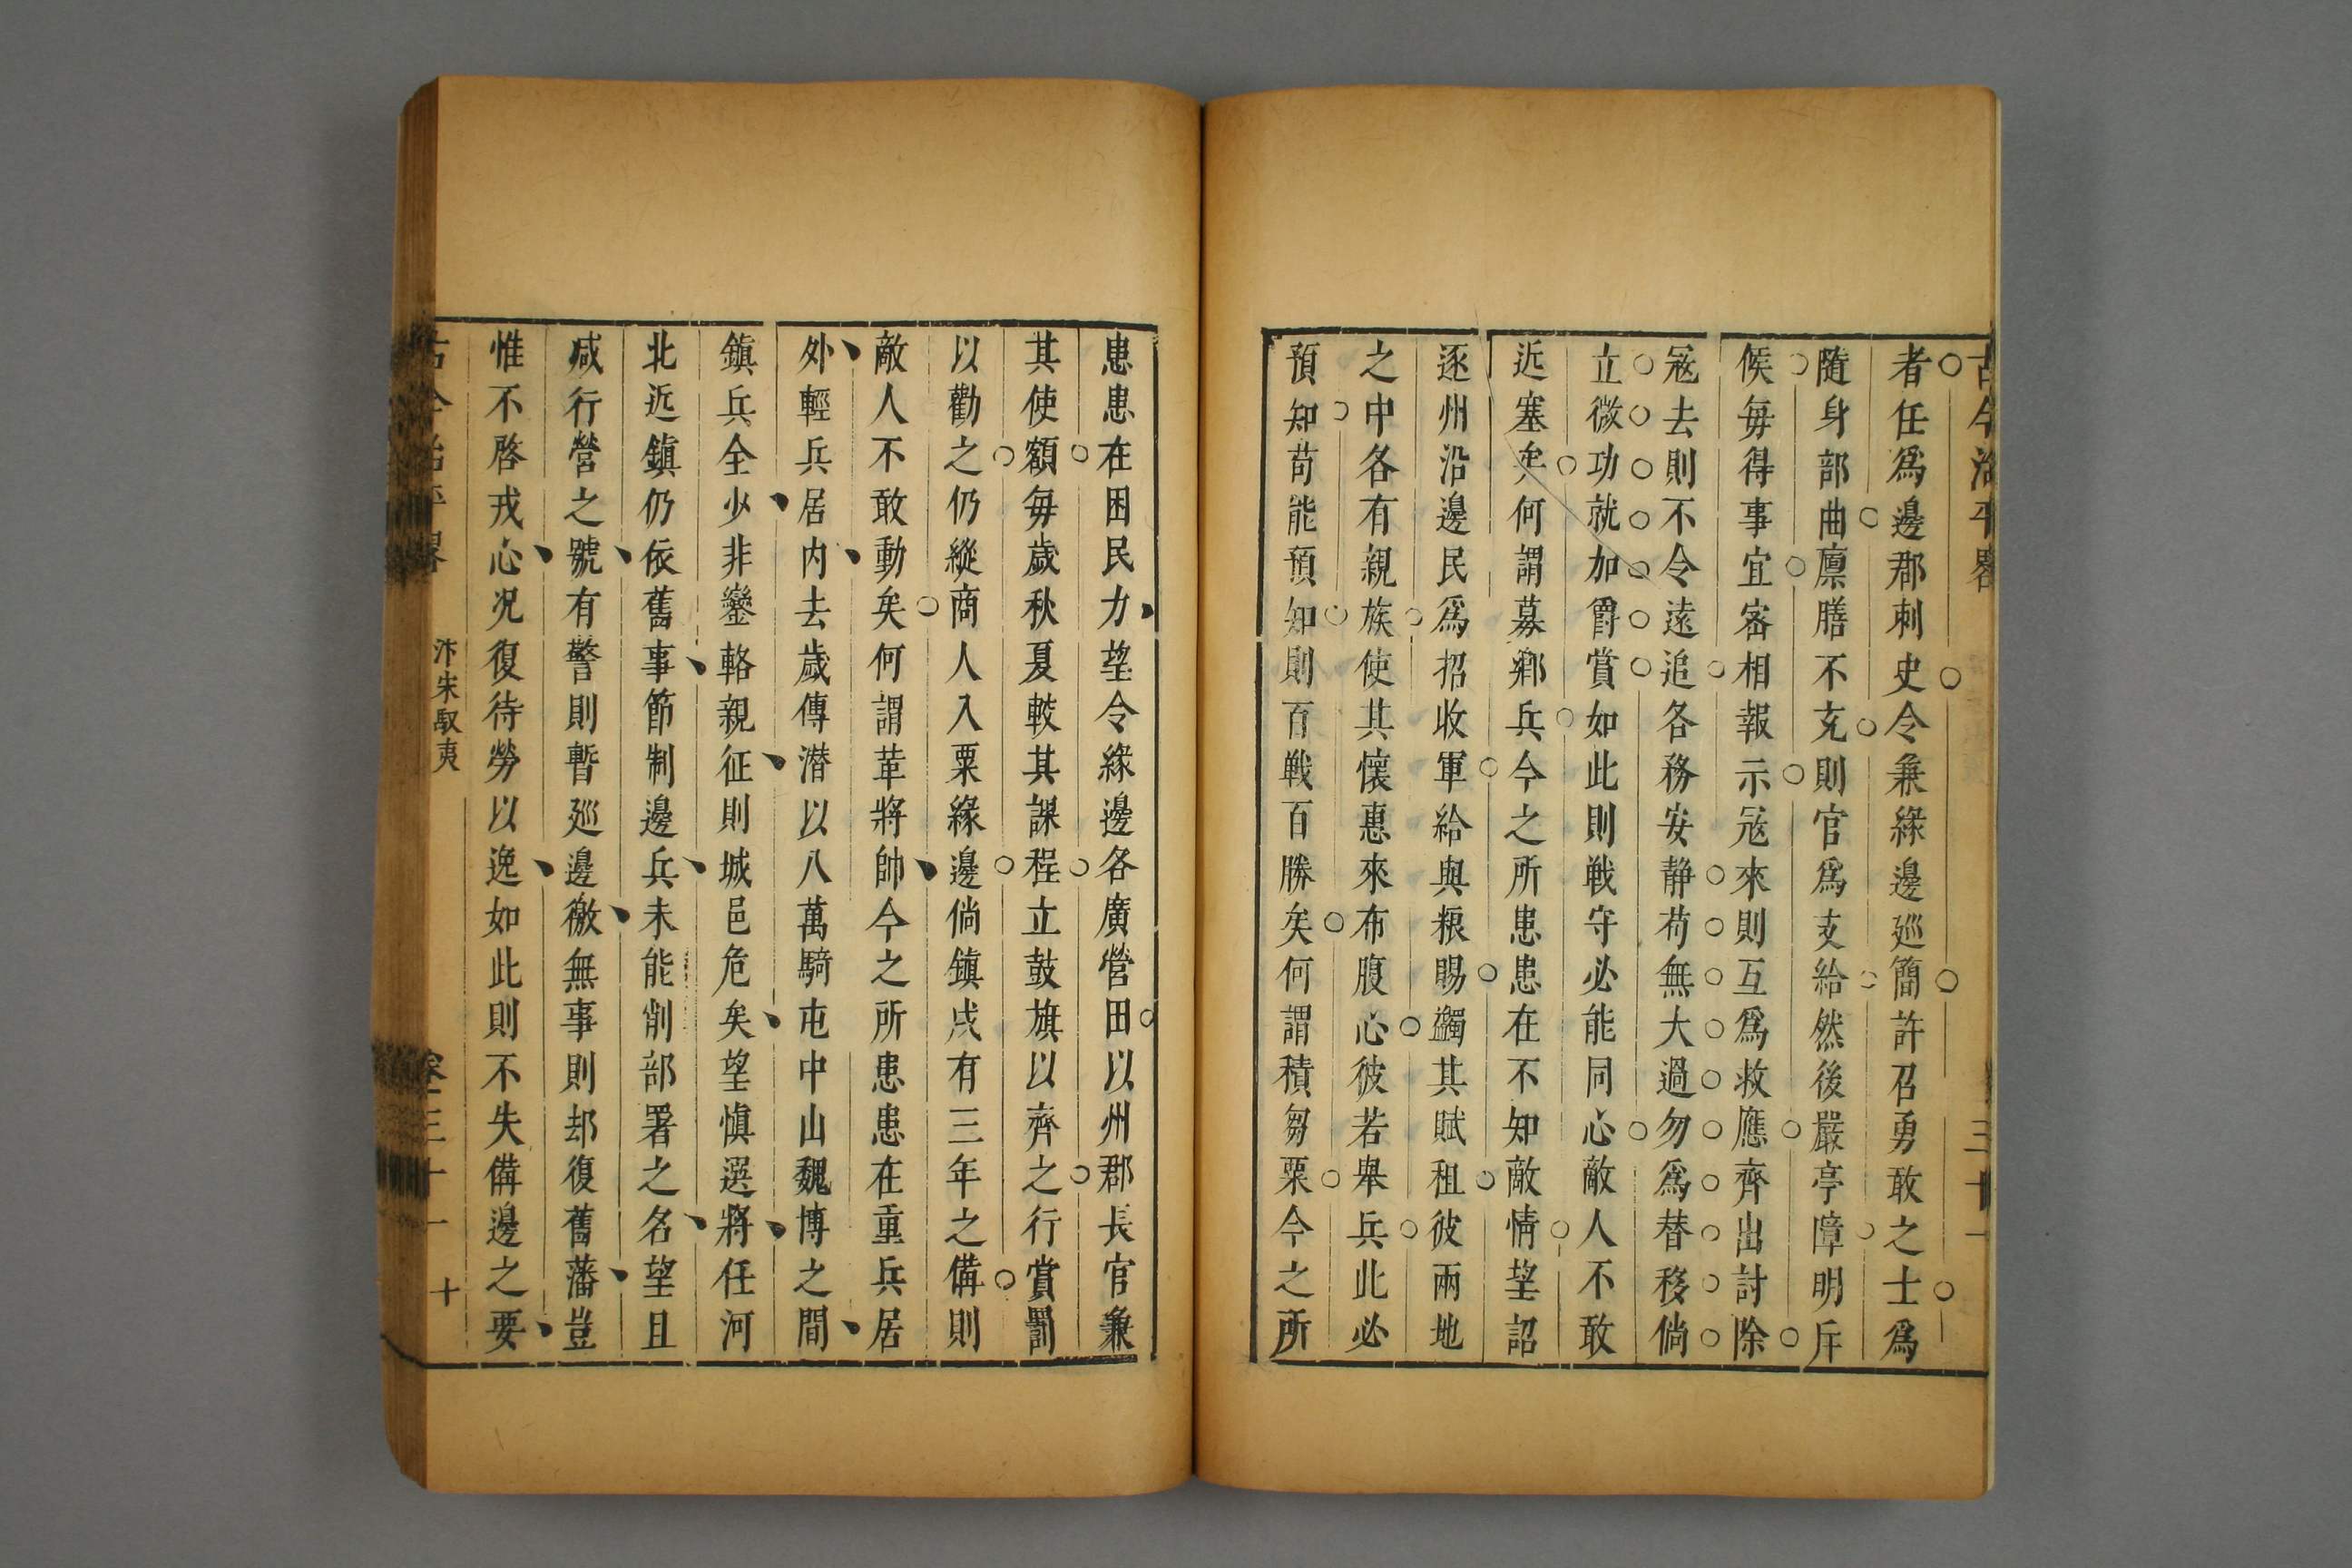 古今治平畧
三十一
者任爲邊郡刺史令兼緣邊廵簡許召勇敢之士爲
隨身部曲廪膳不充則官爲支給然後嚴亭障明斥
候每得事宜密相報示冦來則互爲救應齊出討除
冦去則不令遠追各務安静苟無大過勿爲替移倘
立微功就加爵賞如此則戦守必能同心敵人不敢
近塞矣何謂募鄉兵今之所患患在不知敵情望詔
逐州沿邊民爲招收軍給與粮賜蠲其賦租彼兩地
之中各有親族使其懷惠來布腹心彼若舉兵此必
預知苟能預知則百戦百勝矣何謂積芻粟今之所
患患在困民力望令緣邊各廣營田以州郡長官兼
其使額每歲秋夏較其課程立鼓旗以齊之行賞罰
以勸之仍縱商人入粟緣邊倘鎮戍有三年之備則
敵人不敢動矣何謂革將帥今之所患患在重兵居
外輕兵居内去歲傳潜以八萬騎屯中山魏博之間
鎮兵全少非鑾輅親征則城邑危矣望慎選將任河
北近鎮仍依舊事節制邊兵未能削部署之名望且
减行營之號有警則暫廵邊徼無事則却復舊藩豈
惟不啓戎心况復待勞以逸如此則不失備邊之要
古今治平畧
汴宋馭夷
卷三十一
十